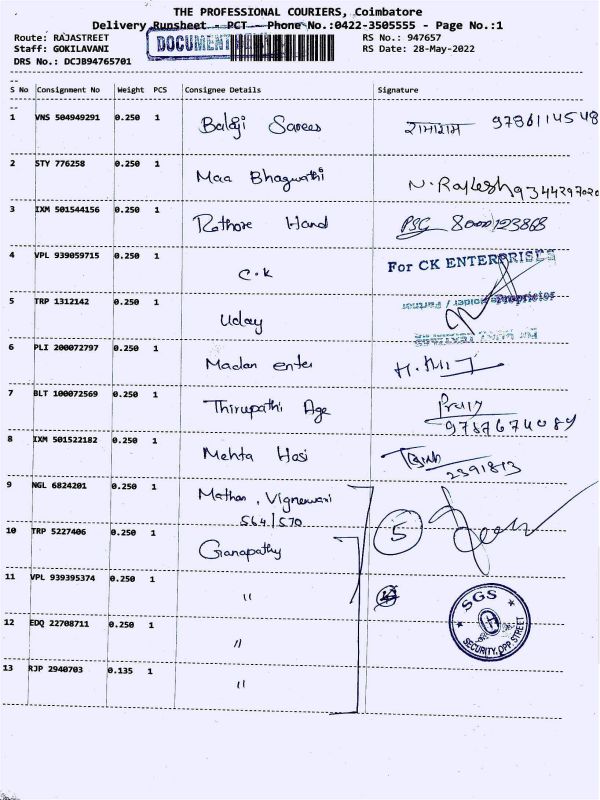 THE PROFESSIONAL COURIERS, Coimbatore
Delivery Runsheet - PCT - Phone No.:0422-3505555 - Page No.:1
Route: RAJASTREET RS No.: 947657
Staff: GOKILAVANI DOCUMENT RS Date: 28-May-2022
DRS No.: DCJB94765701
S No Consignment No Weight PCS Consignee Details Signature
1 VNS 504949291 0.250 1 Balaji Sarees रामाराम
2 STY 776258 0.250 1 Maa Bhagwathi N. Rajkesh 9344297020
3 IXM 501544156 0.250 1 Rathore Hand 8000123868
4 VPL 939059715 0.250 1 C.K For CK ENTERPRISES
Proprietor
5 TRP 1312142 0.250 1 Uday
6 PLI 200072797 0.250 1 Madan enter
7 BLT 100072569 0.250 1 Thirupathi Age
8 IXM 501522182 0.250 1 Mehta Hosi 2391813
9 NGL 6824201 0.250 1 Mathan, Vigneswari
564/570 5
10 TRP 5227406 0.250 1 Ganapathy
11 VPL 939395374 0.250 1 "
12 EDQ 22708711 0.250 1 " SGS
SECURITY, OPP. STREET
13 RJP 2940703 0.135 1 "